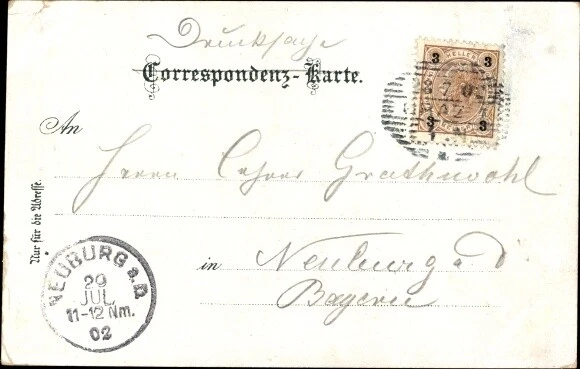 Drucksache
Correspondenz-Karte.
3 3
3 3
An
Herrn Lehrer Grathwohl
in Neuburg a D
Bayern
Nur für die Adresse.
NEUBURG a.D.
29
JUL
11-12 Nm.
02